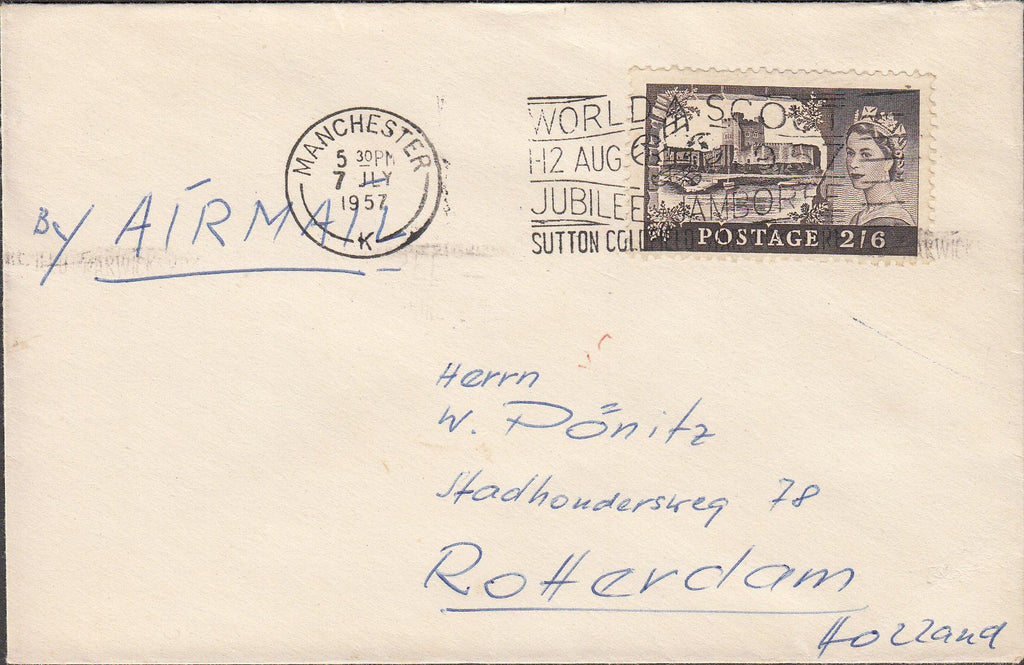 MANCHESTER
5 30PM
7 JLY
1957
K
WORLD SCOUT
1-12 AUG 1957
JUBILEE JAMBOREE
SUTTON COLDFIELD
POSTAGE 2/6
By AIRMAIL
Herrn
W. Pönitz
Stadhoudersweg 78
Rotterdam
Holland